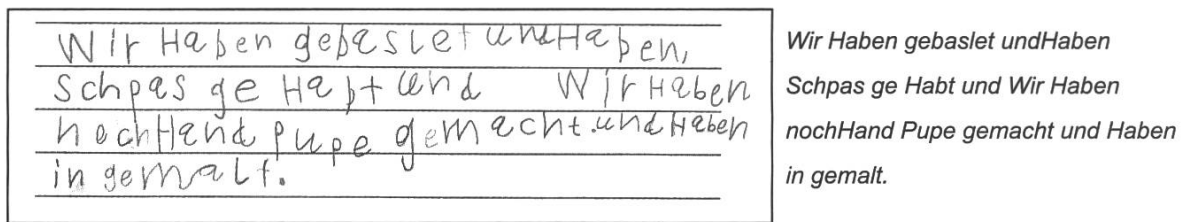 Wir Haben gebaslet undHaben,
Schpas ge Habt und Wir Haben
nochHand pupe gemacht.undHaben
in gemalt.
Wir Haben gebaslet undHaben
Schpas ge Habt und Wir Haben
nochHand Pupe gemacht und Haben
in gemalt.